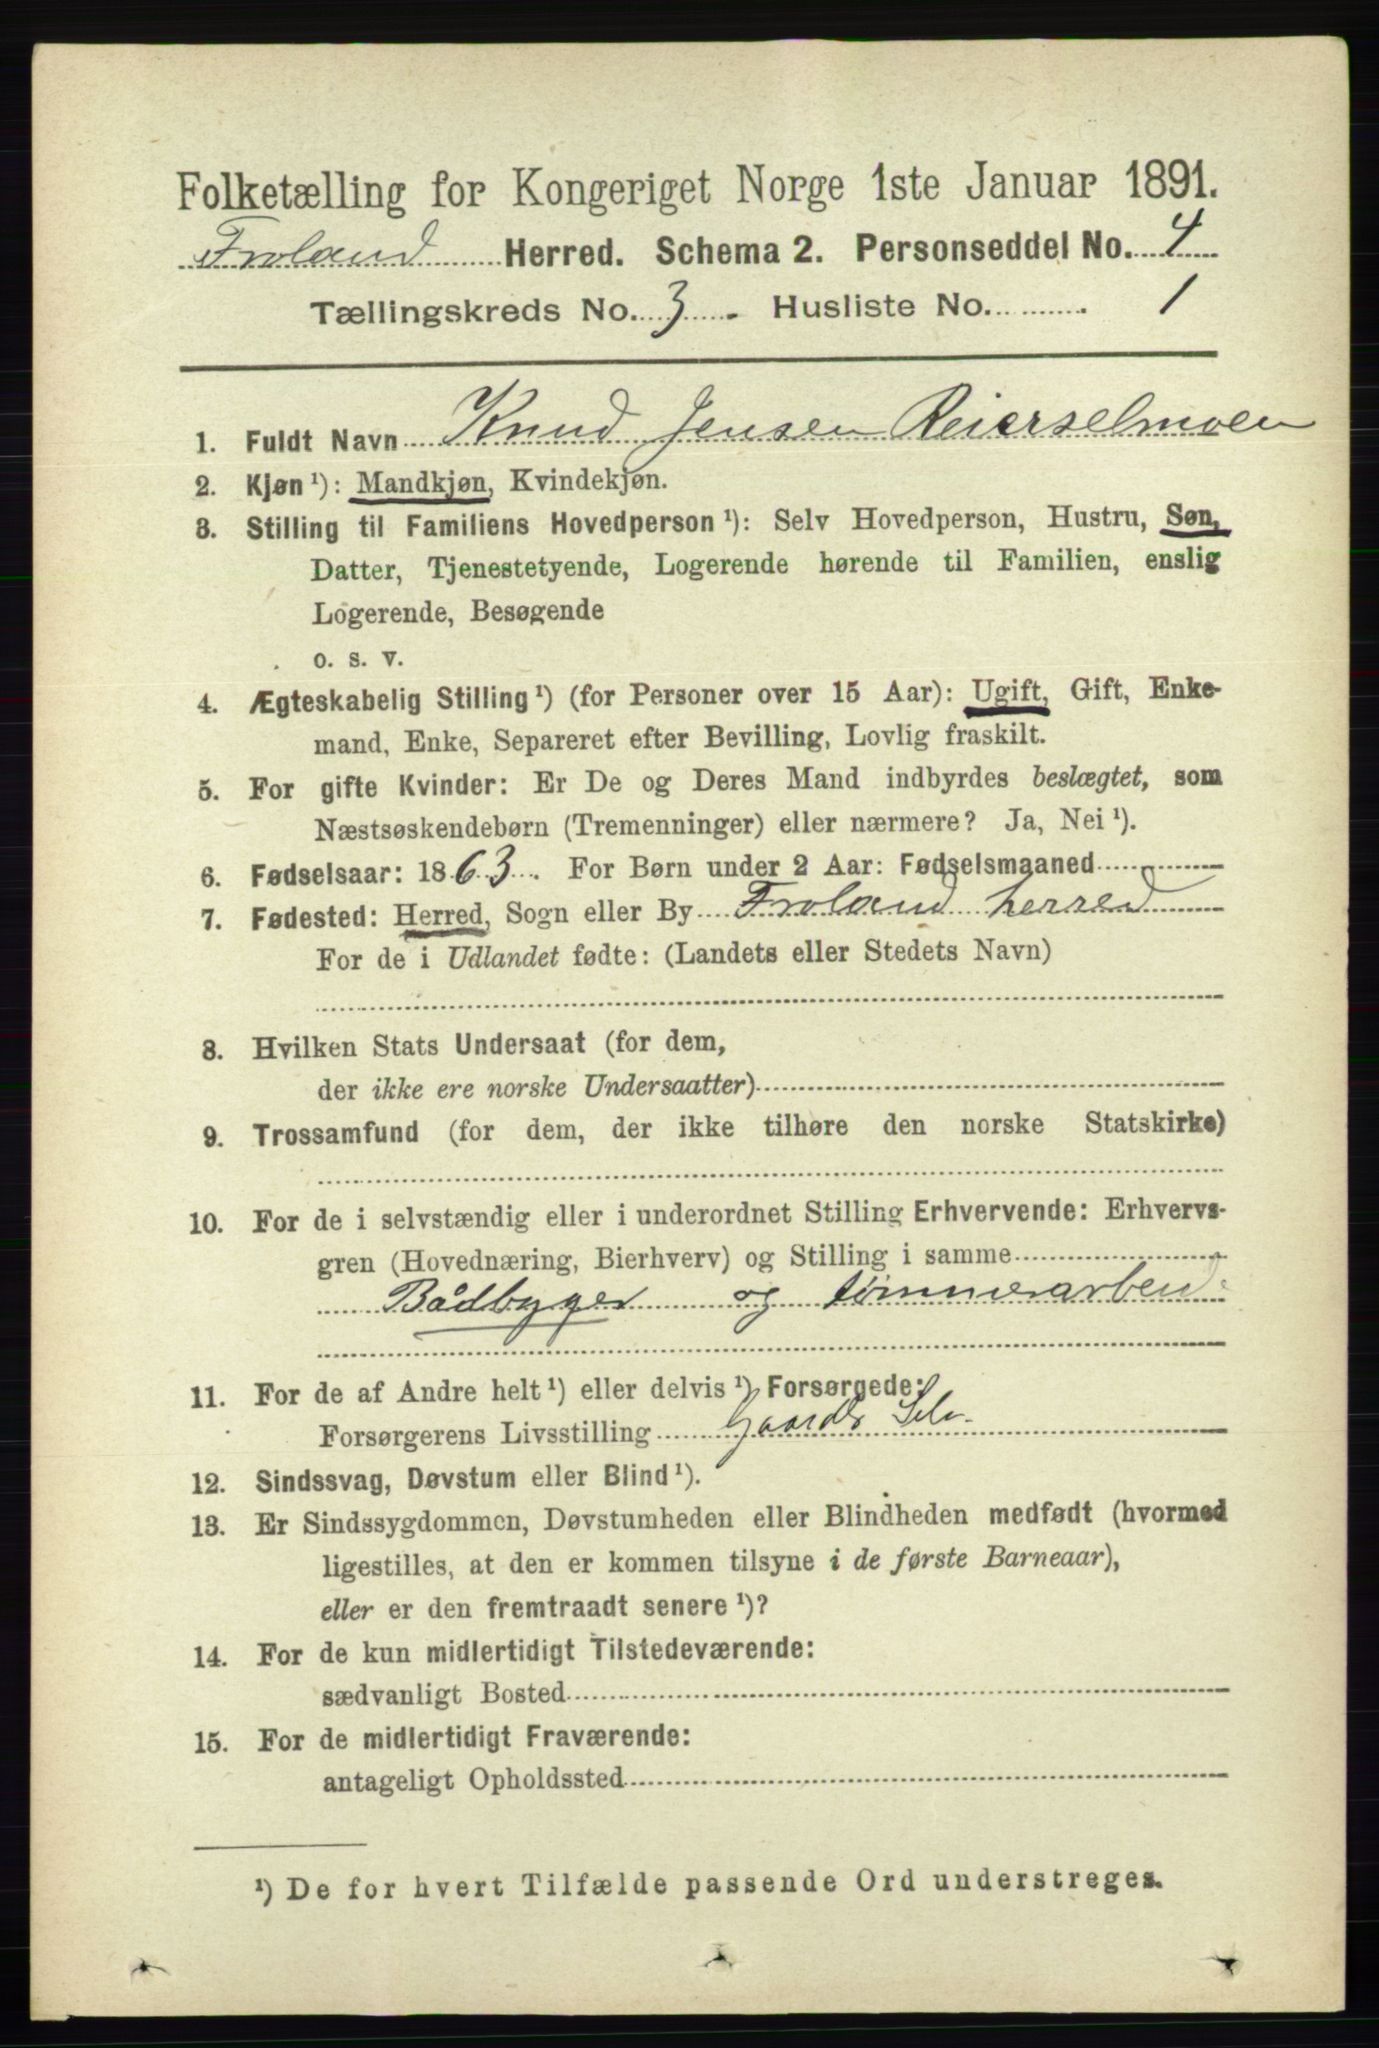 Folketælling for Kongeriget Norge 1ste Januar 1891.
Froland Herred. Schema 2. Personseddel No. 4
Tællingskreds No. 3. Husliste No. 1
1. Fuldt Navn Knud Jensen Reierselmoen
2. Kjøn ¹): Mandkjøn, Kvindekjøn.
3. Stilling til Familiens Hovedperson ¹): Selv Hovedperson, Hustru, Søn,
Datter, Tjenestetyende, Logerende hørende til Familien, enslig
Logerende, Besøgende
o. s. v.
4. Ægteskabelig Stilling ¹) (for Personer over 15 Aar): Ugift, Gift, Enke-
mand, Enke, Separeret efter Bevilling, Lovlig fraskilt.
5. For gifte Kvinder: Er De og Deres Mand indbyrdes beslægtet, som
Næstsøskendebørn (Tremenninger) eller nærmere? Ja, Nei ¹).
6. Fødselsaar: 1863. For Børn under 2 Aar: Fødselsmaaned
7. Fødested: Herred, Sogn eller By Froland herred
For de i Udlandet fødte: (Landets eller Stedets Navn)
8. Hvilken Stats Undersaat (for dem,
der ikke ere norske Undersaatter)
9. Trossamfund (for dem, der ikke tilhøre den norske Statskirke)
10. For de i selvstændig eller i underordnet Stilling Erhvervende: Erhvervs-
gren (Hovednæring, Bierhverv) og Stilling i samme
Bådbyger og tømmerarbeid
11. For de af Andre helt ¹) eller delvis ¹) Forsørgede:
Forsørgerens Livsstilling Gaardb. Selv.
12. Sindssvag, Døvstum eller Blind ¹).
13. Er Sindssygdommen, Døvstumheden eller Blindheden medfødt (hvormed
ligestilles, at den er kommen tilsyne i de første Barneaar),
eller er den fremtraadt senere ¹)?
14. For de kun midlertidigt Tilstedeværende:
sædvanligt Bosted
15. For de midlertidigt Fraværende:
antageligt Opholdssted
¹) De for hvert Tilfælde passende Ord understreges.